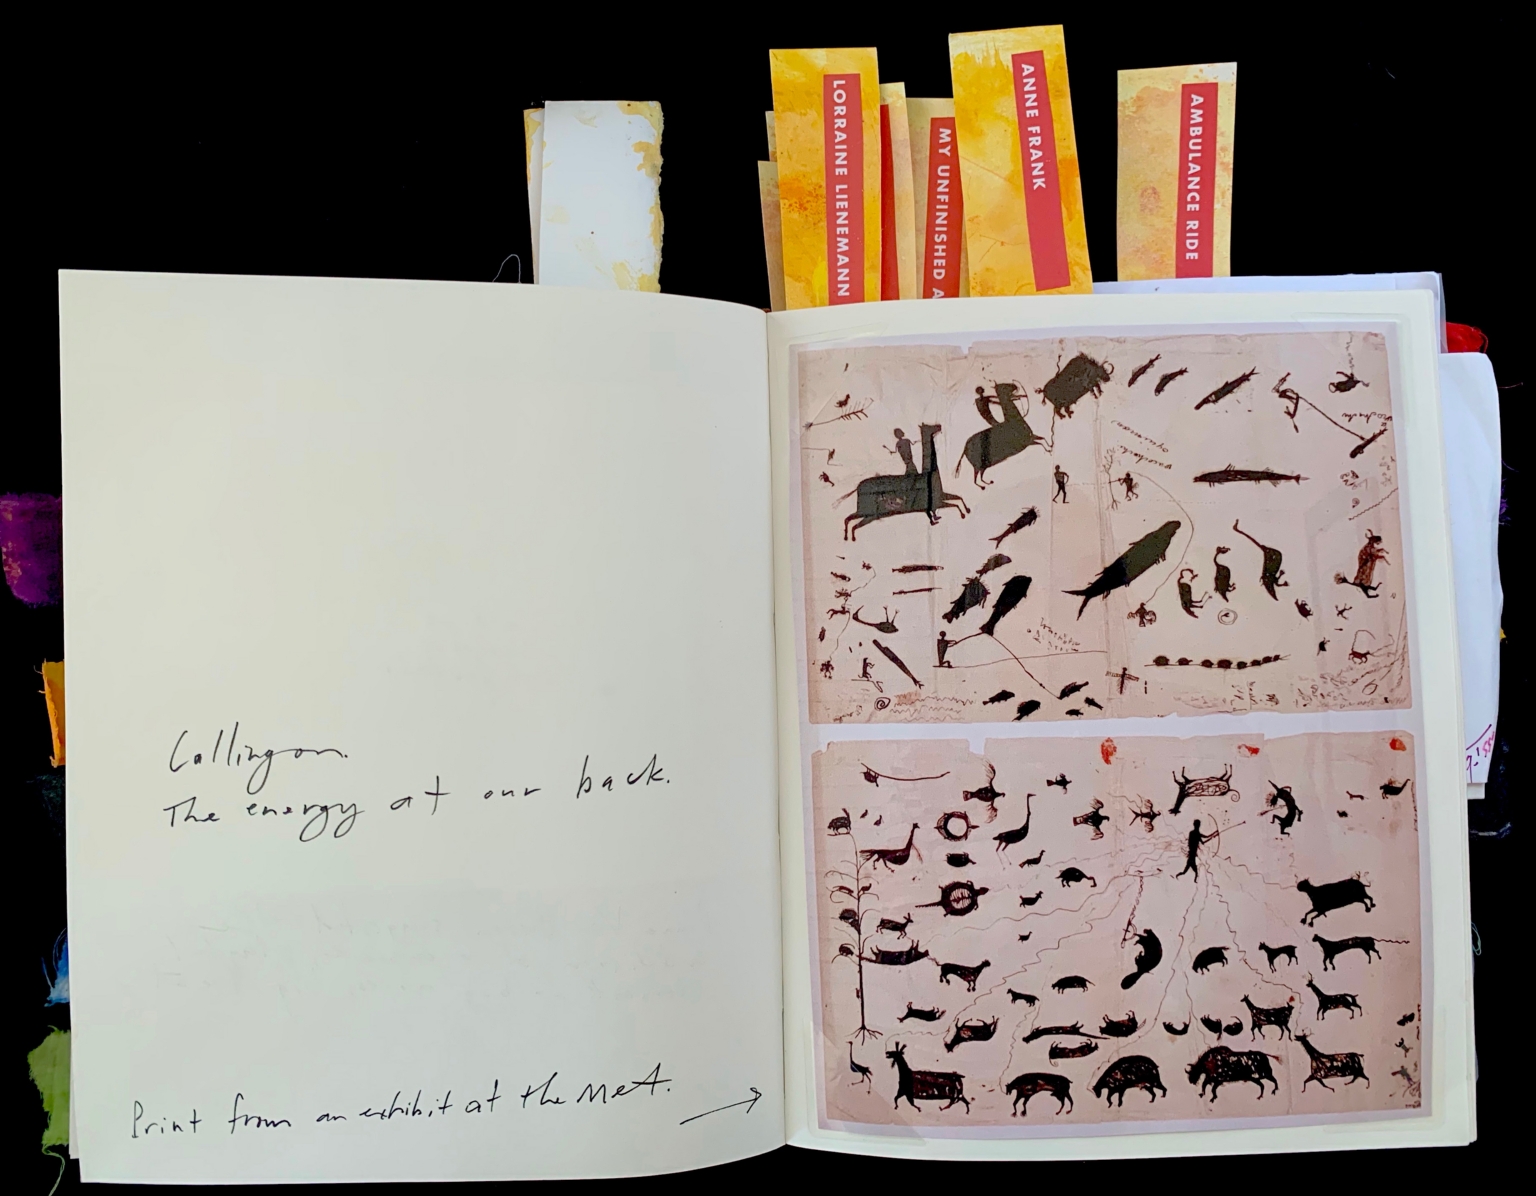 LORRAINE LIENEMANN
MY UNFINISHED A
ANNE FRANK
AMBULANCE RIDE
Calling on.
The energy at our back.
Print from an exhibit at the MeT.